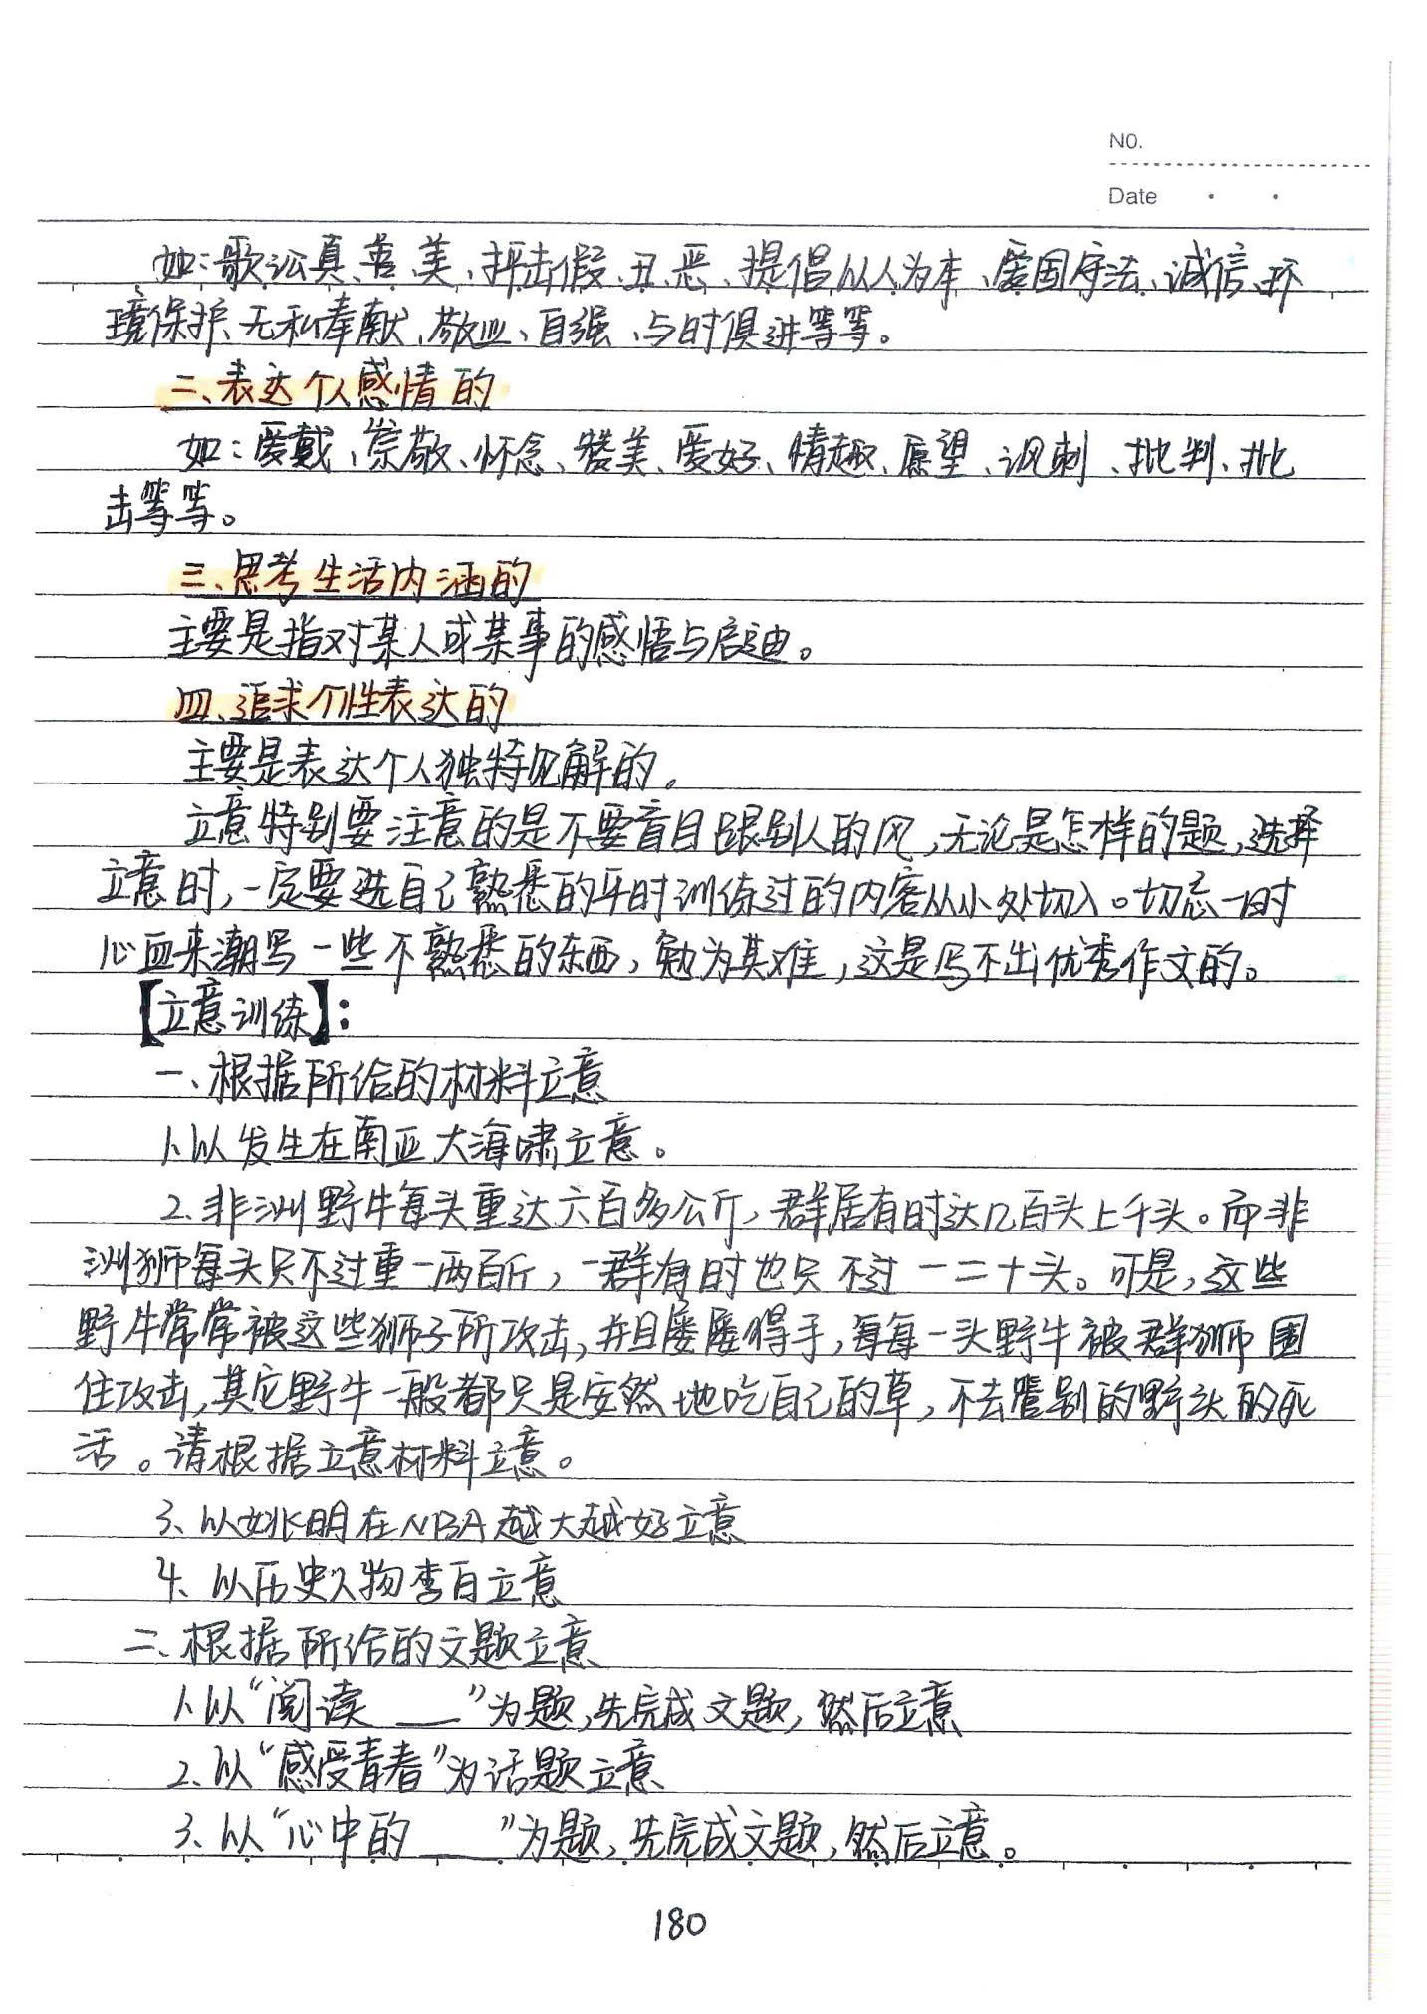 NO.
Date
如:歌讼真、善、美、抨击假、丑、恶、提倡以人为本、爱国守法、诚信、环
境保护、无私奉献、敬业、自强、与时俱进等等。
二、表达个人感情的
如:爱戴、崇敬、怀念、赞美、爱好、情趣、愿望、讽刺、批判、抨
击等等。
三、思考生活内涵的
主要是指对某人或某事的感悟与启迪。
四、追求个性表达的
主要是表达个人独特见解的。
立意特别要注意的是不要盲目跟别人的风,无论是怎样的题,选择
立意时,一定要选自己熟悉的平时训练过的内容从小处切入。切忌一时
心血来潮写一些不熟悉的东西,勉为其难,这是写不出优秀作文的。
【立意训练】:
一、根据所给的材料立意
1、以发生在南亚大海啸立意。
2、非洲野牛每头重达六百多公斤,群居有时达几百头上千头。而非
洲狮每头只不过重一两百斤,一群有时也只不过一二十头。可是,这些
野牛常常被这些狮子所攻击,并且屡屡得手,每每一头野牛被群狮围
住攻击,其它野牛一般都只是安然地吃自己的草,不去管别的野头的死
活。请根据立意材料立意。
3、以姚明在NBA越大越好立意
4、以历史人物李白立意
二、根据所给的文题立意
1、以“阅读 ___”为题,先完成文题,然后立意
2、以“感受青春”为话题立意
3、以“心中的 ___”为题,先完成文题,然后立意。
180